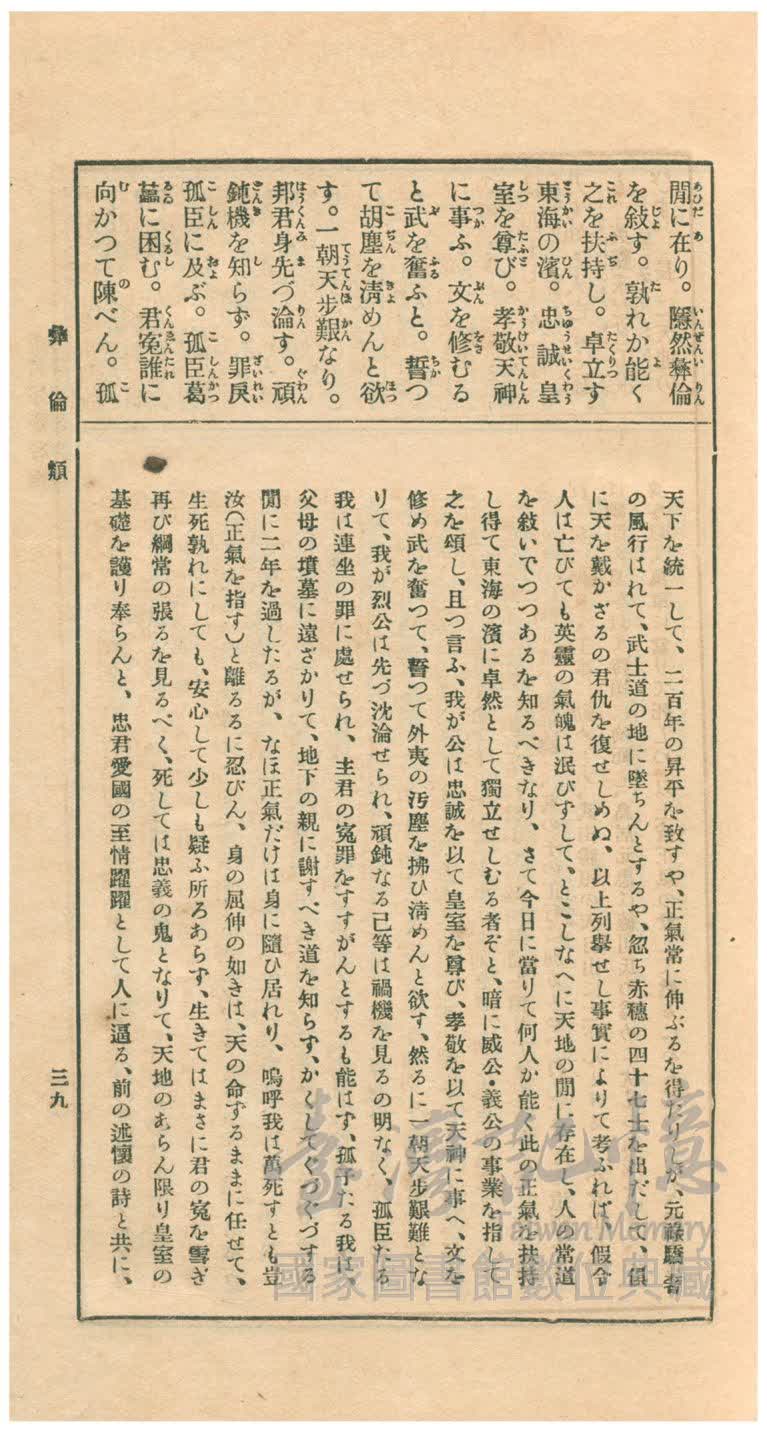 閒に在り。隱然彝倫
を敍す。孰れか能く
之を扶持し。卓立す
東海の濱。忠誠皇
室を尊び。孝敬天神
に事ふ。文を修むる
と武を奮ふと。誓つ
て胡塵を淸めんと欲
す。一朝天步艱なり。
邦君身先づ淪す。頑
鈍機を知らず。罪戾
孤臣に及ぶ。孤臣葛
藟に困む。君寃誰に
向かつて陳べん。孤
天下を統一して、二百年の昇平を致すや、正氣常に伸ぶるを得たりしが、元祿驕奢
の風行はれて、武士道の地に墜ちんとするや、忽ち赤穗の四十七士を出だして、俱
に天を戴かざるの君仇を復せしめぬ、以上列擧せし事實によりて考ふれば、假令
人は亡びても英靈の氣魄は泯びずして、とこしなへに天地の閒に存在し、人の常道
を敍いでつつあるを知るべきなり、さて今日に當りて何人か能く此の正氣を扶持
し得て東海の濱に卓然として獨立せしむる者ぞと、暗に威公・義公の事業を指して
之を頌し、且つ言ふ、我が公は忠誠を以て皇室を尊び、孝敬を以て天神に事へ、文を
修め武を奮つて、誓つて外夷の汚塵を拂ひ淸めんと欲す、然るに一朝天步艱難とな
りて、我が烈公は先づ沈淪せられ、頑鈍なる己等は禍機を見るの明なく、孤臣たる
我は連坐の罪に處せられ、主君の寃罪をすすがんとするも能はず、孤子たる我は、
父母の墳墓に遠ざかりて、地下の親に謝すべき道を知らず、かくしてぐづぐづする
閒に二年を過したるが、なほ正氣だけは身に隨ひ居れり、嗚呼我は萬死すとも豈
汝(正氣を指す)と離るるに忍びん、身の屈伸の如きは、天の命ずるままに任せて、
生死孰れにしても、安心して少しも疑ふ所ろあらず、生きてはまさに君の寃を雪ぎ
再び綱常の張るを見るべく、死しては忠義の鬼となりて、天地のあらん限り皇室の
基礎を護り奉らんと、忠君愛國の至情躍躍として人に逼る、前の述懷の詩と共に、
彝倫類
三九
臺灣記憶
Taiwan Memory
國家圖書館數位典藏